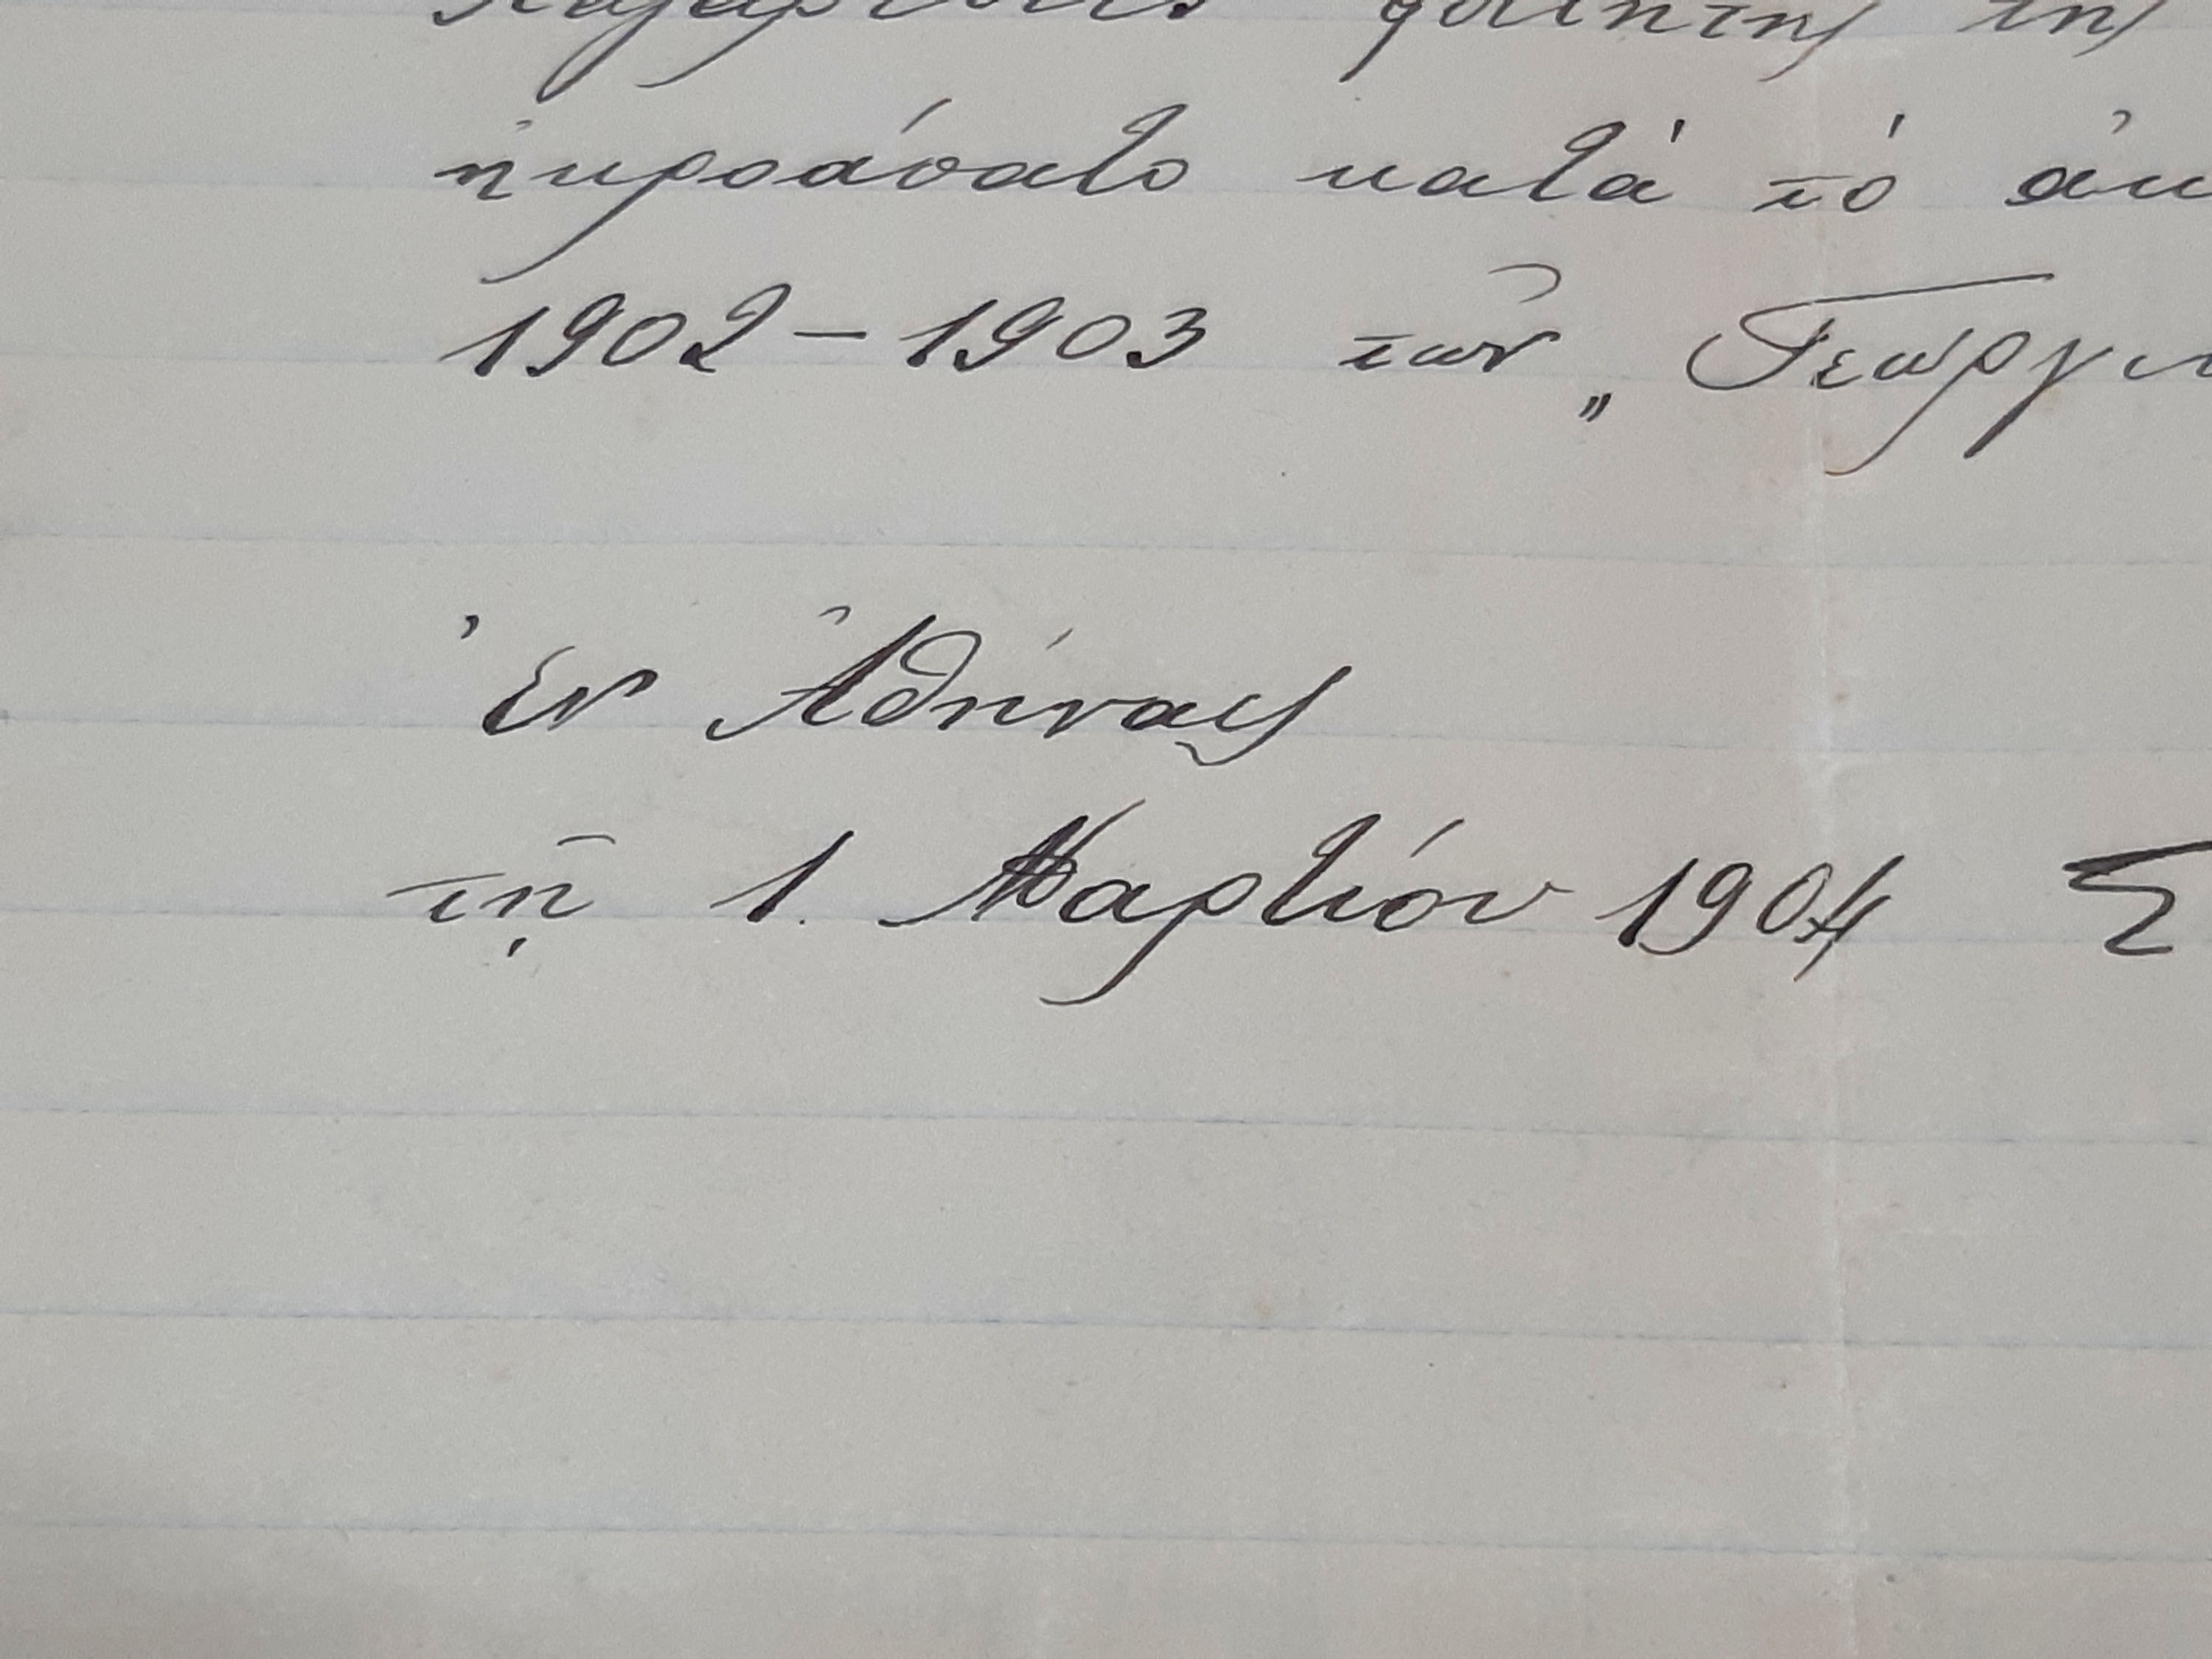 φοιτητὴς τῆς
ἠκροάσατο κατὰ τὸ ἀκ
1902 – 1903 τῶν „ Γεωργι
Ἐν Ἀθήναις
τῇ 1. Μαρτίου 1904 Σ